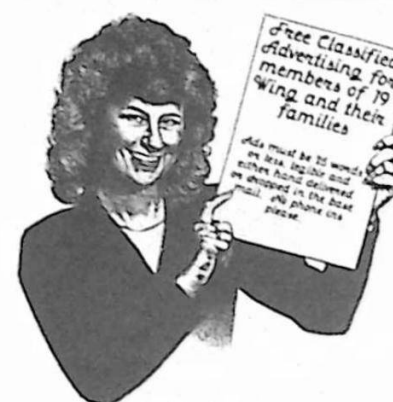 Free Classified
Advertising for
members of 19
Wing and their
families
Ads must be 25 words
or less, legible and
either hand delivered
or dropped in the base
mail. No phone ins
please.